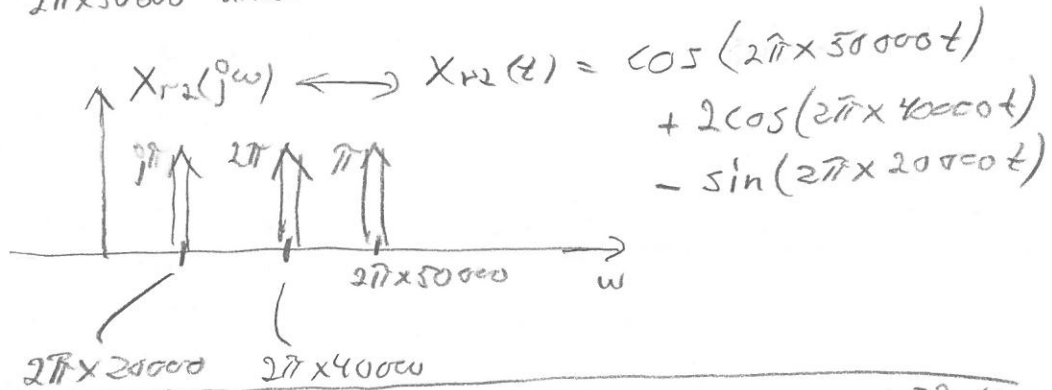 2π×50000
X_r2(jω) ⟷ x_r2(t) = cos(2π×50000t)
+ 2cos(2π×40000t)
- sin(2π×20000t)
jπ 2π π
2π×50000 ω
2π×20000 2π×40000